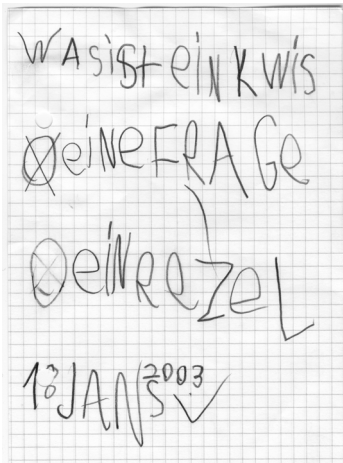 WAS iSt eiN KWiS
eiNe FRAGe
eiN ReZeL
JANS 2003